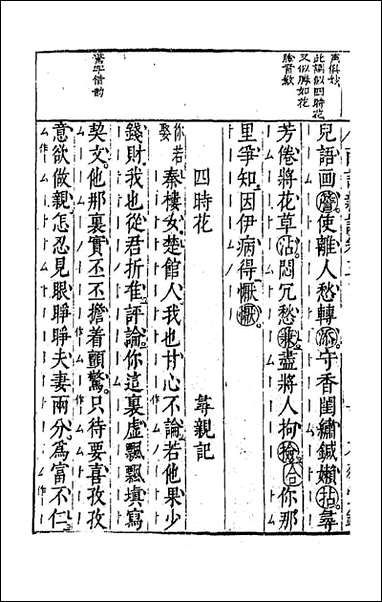 此調似四時花
又似勝如花
兒語画簷使離人愁轉添守香閨繡鍼嬾拈尋
芳倦將花草沾悶冗愁兼盡將人拘撿合你那
里爭知因伊病得懨懨
四時花
尋親記
你若娶秦樓女楚館人我也甘心不論若他果少
錢財我也從君折准評論你這裏虛飄飄填寫
契文他那裏實丕丕擔着顫驚只待要喜孜孜
驚字借韵
意欲做親怎忍見眼睜睜夫妻兩分為富不仁